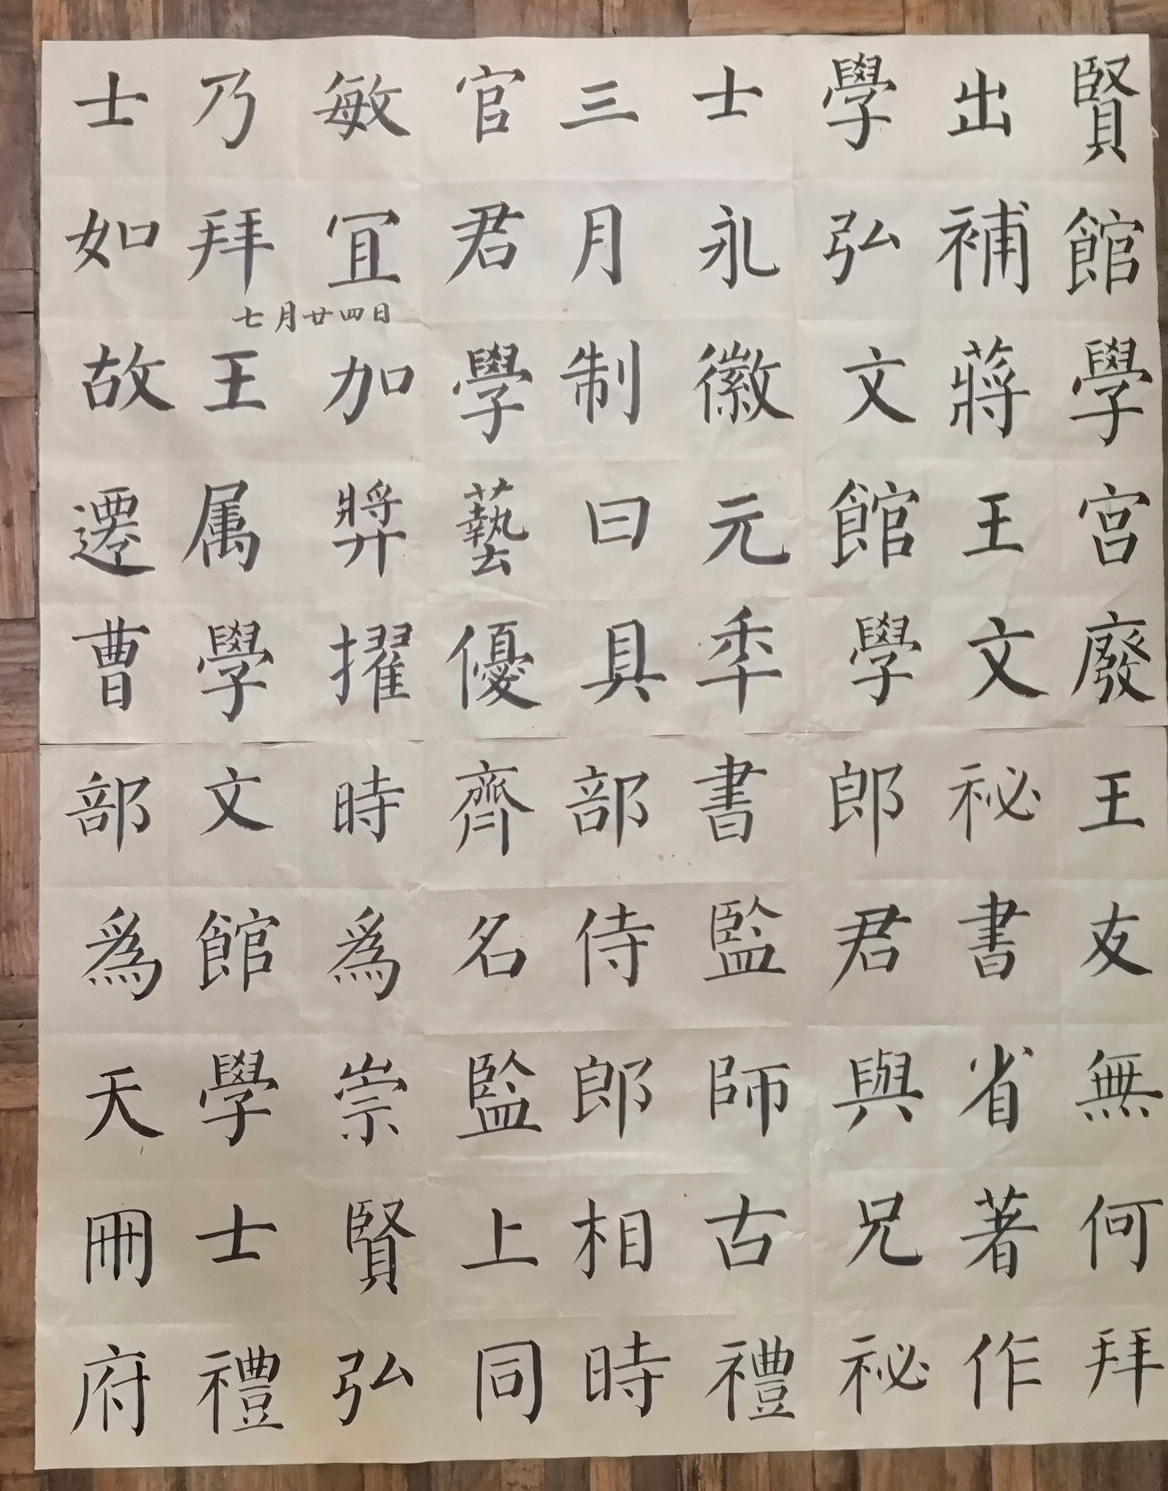 賢館學宮廢王友無何拜
出補蔣王文祕書省著作
學弘文館學郎君與兄祕
士永徽元秊書監師古禮
三月制曰具部侍郎相時
官君學藝優齊名監上同
敏宜加獎擢時爲崇賢弘
乃拜王属學文館學士禮
士如故遷曹部爲天冊府
七月廿四日